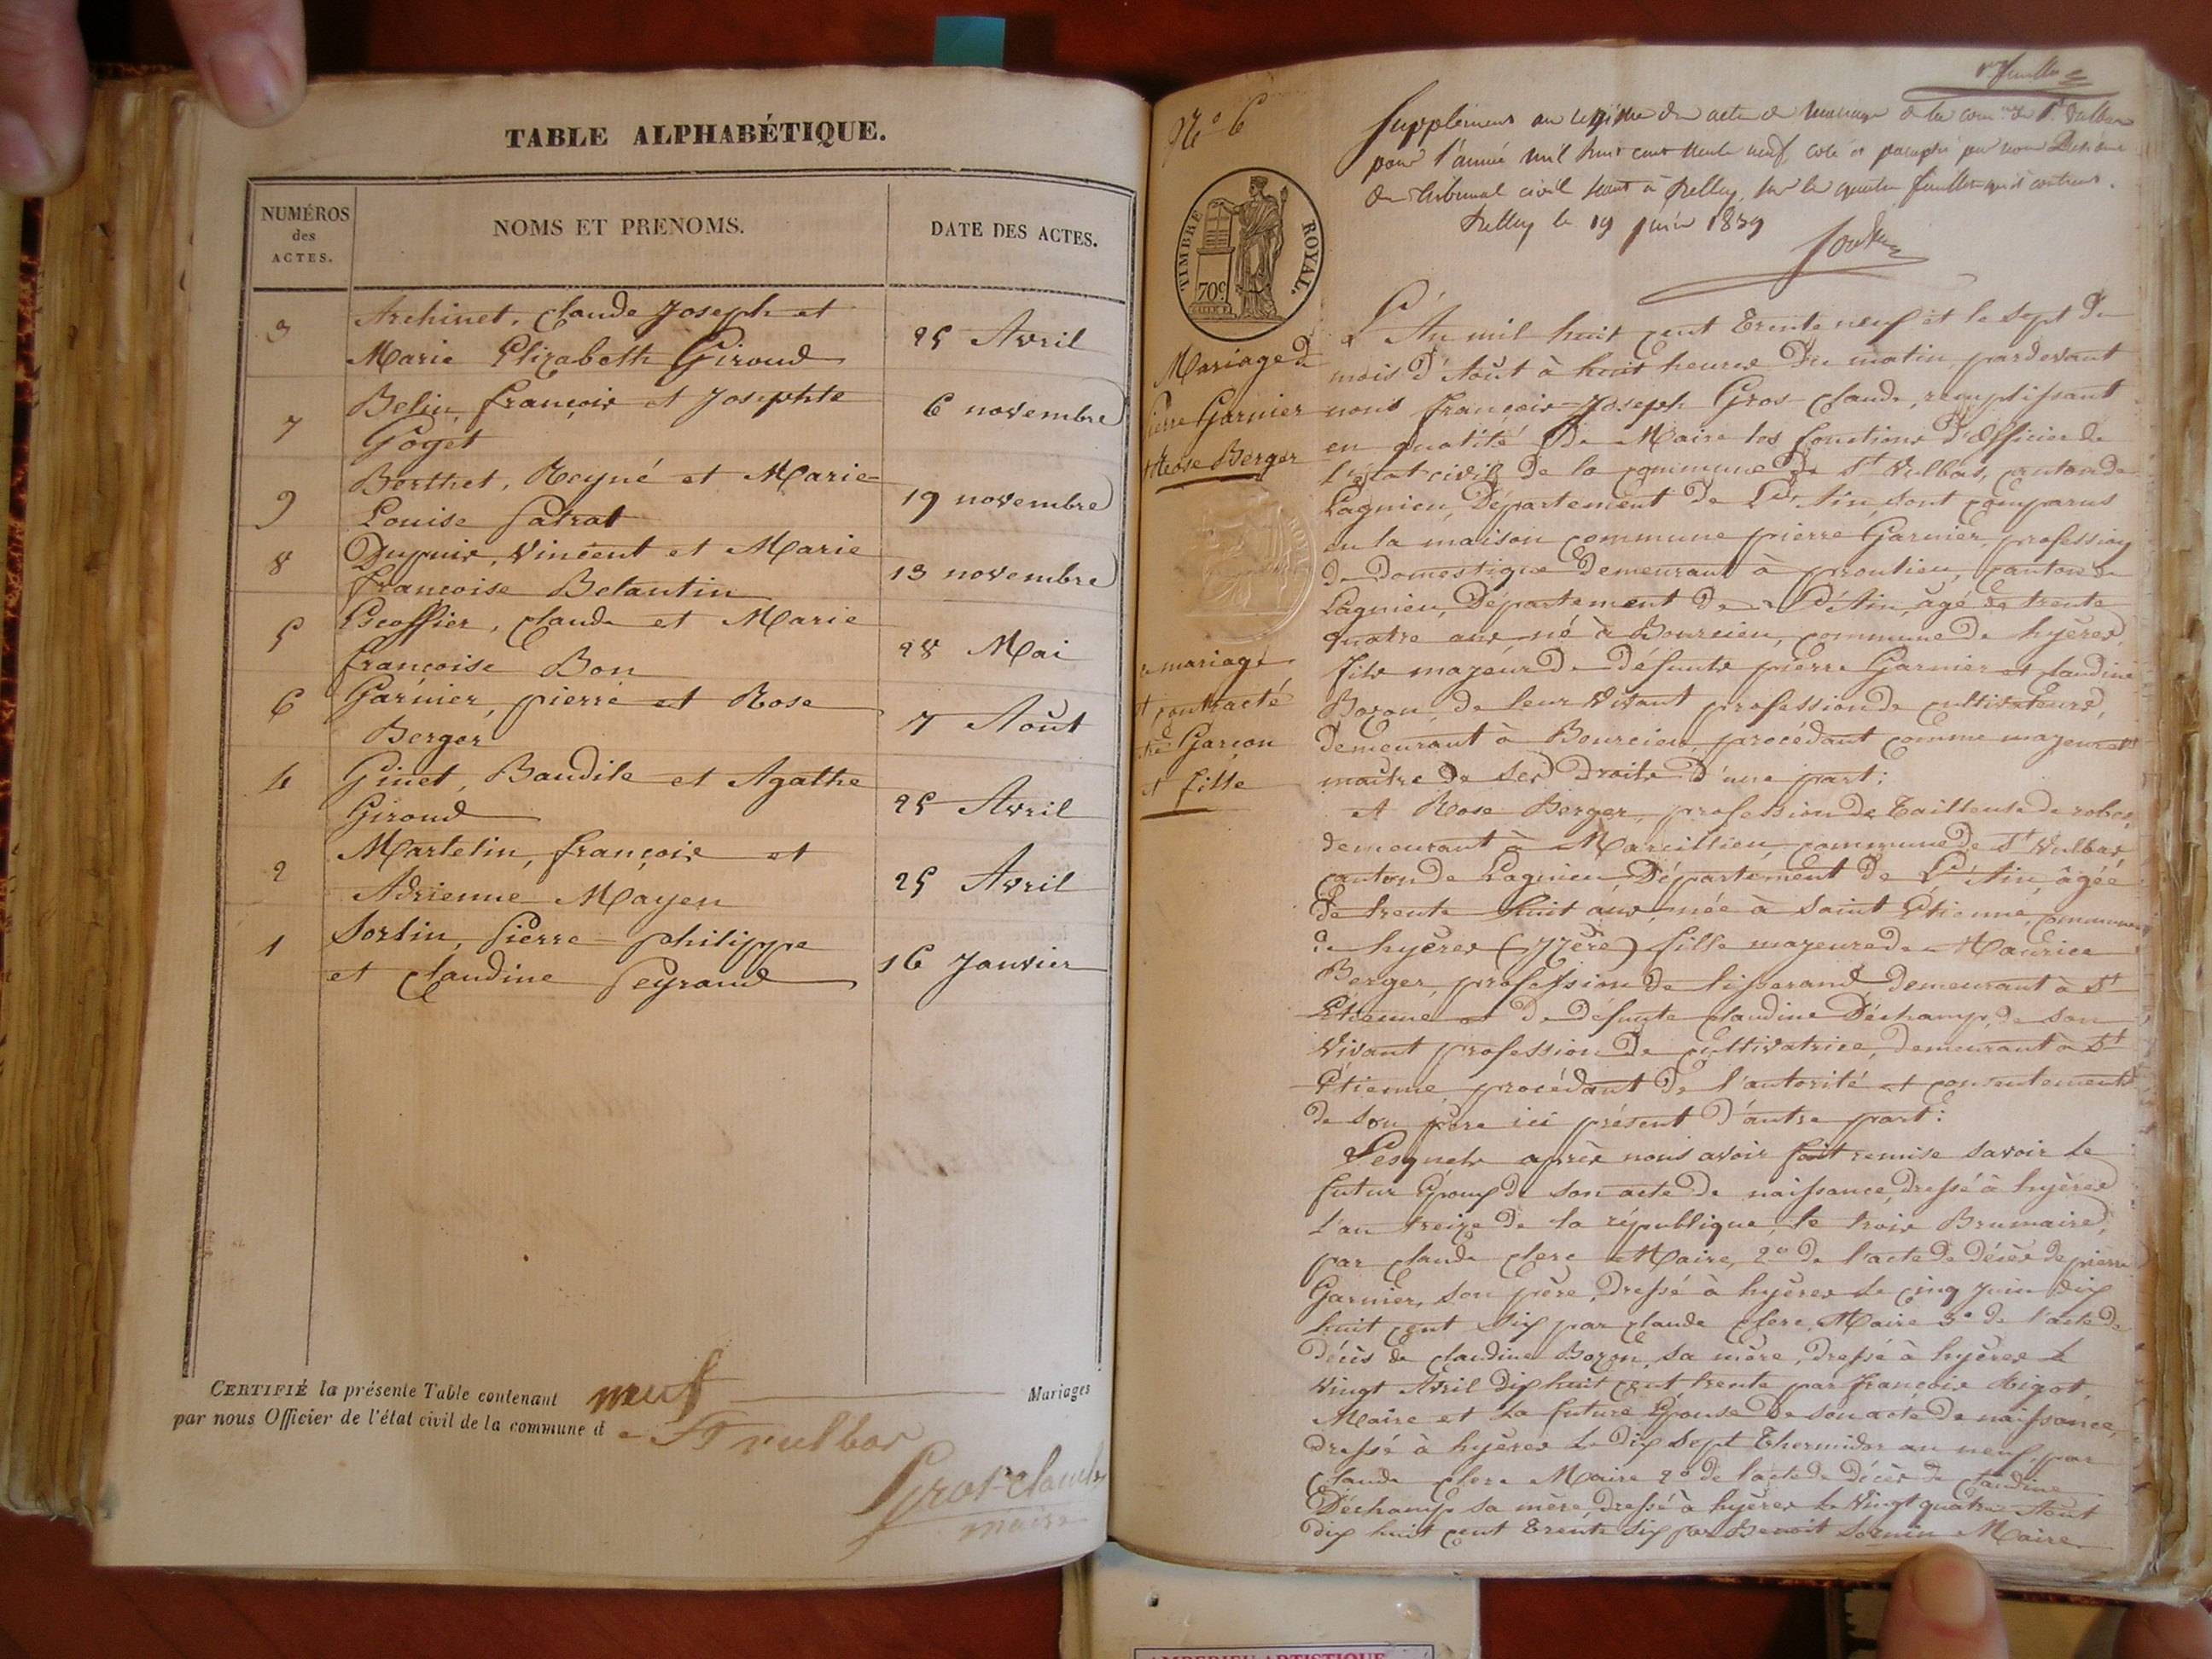 TABLE ALPHABÉTIQUE.
NUMÉROS
des
ACTES.
NOMS ET PRENOMS.
DATE DES ACTES.
3 Archinet, Claude Joseph et
Marie Elizabeth Giroud
25 Avril
7 Belin, françois et Josephte
Goyet
6 novembre
9 Berthet, Reyné et Marie-
Louise Patrat
19 novembre
8 Dupuis, Vincent et Marie
françoise Belantin
13 novembre
5 Escoffier, Claude et Marie
françoise Bon
28 Mai
6 Garnier, pierre et Rose
Berger
7 Août
4 Ginet, Baudile et Agathe
Giroud
25 Avril
2 Martelin, françois et
Adrienne Mayen
25 Avril
1 Sorlin, Pierre-philippe
et Claudine Peyraud
16 Janvier
CERTIFIÉ la présente Table contenant neuf Mariages
par nous Officier de l'état civil de la commune de St vulbas
Gros-Claude
maire
1er feuillet
N° 6
Supplément au registre des actes de mariage de la comne de St Vulbas
pour l'année mil huit cent trente neuf, coté et paraphé par nous
du tribunal civil séant à Belley, sur les quatre feuillets qu'il contient.
Belley le 19 juin 1839
TIMBRE ROYAL.
70c
Mariage de
pierre Garnier
et Rose Berger
Ce mariage
est contracté
entre Garçon
et fille
L'An mil huit cent trente neuf et le sept du
mois d'Août à huit heures du matin, pardevant
nous françois-Joseph Gros-Claude, remplissant
en qualité de Maire les fonctions d'officier de
l'état-civil de la commune de St Vulbas, canton de
Lagnieu, Département de L'Ain, sont comparus
en la maison commune pierre Garnier, profession
de Domestique demeurant à proulieu, canton de
Lagnieu, Département de L'Ain, âgé de trente
quatre ans né à Bourcieu, commune de hyères,
fils majeur de défunts pierre Garnier et Claudine
Bozon, de leur vivant profession de cultivateurs,
demeurant à Bourcieu, procédant comme majeur et
maître de ses droits d'une part:
et Rose Berger, profession de tailleuse de robes,
demeurant à Marcillieu, commune de St Vulbas,
canton de Lagnieu, Département de L'Ain, âgée
de trente huit ans, née à Saint Etienne, commune
de hyères (Isère) fille majeure de Maurice
Berger, profession de tisserand demeurant à St
Etienne et de défunte Claudine Déchamp, de son
vivant profession de cultivatrice, demeurant à St
Etienne, procédant de l'autorité et consentement
de son père ici présent d'autre part:
Lesquels après nous avoir fait remise savoir le
futur Epoux de son acte de naissance, dressé à hyères
l'an treize de la république, le trois Brumaire,
par Claude Clerc Maire, 2° de l'acte de décès de pierre
Garnier, son père, dressé à hyères le cinq Juin dix
huit cent six par Claude Clerc, Maire 3° de l'acte de
décès de Claudine Bozon, sa mère, dressé à hyères le
vingt Avril dix huit cent trente par françois Rigot,
Maire et la future Epouse de son acte de naissance,
dressé à hyères le dix sept Thermidor an neuf, par
Claude Clerc Maire 2° de l'acte de décès de Claudine
Déchamp sa mère, dressé à hyères le vingt quatre Août
dix huit cent trente six par Benoit Sornin Maire
AMBERIEU ARTISTIQUE